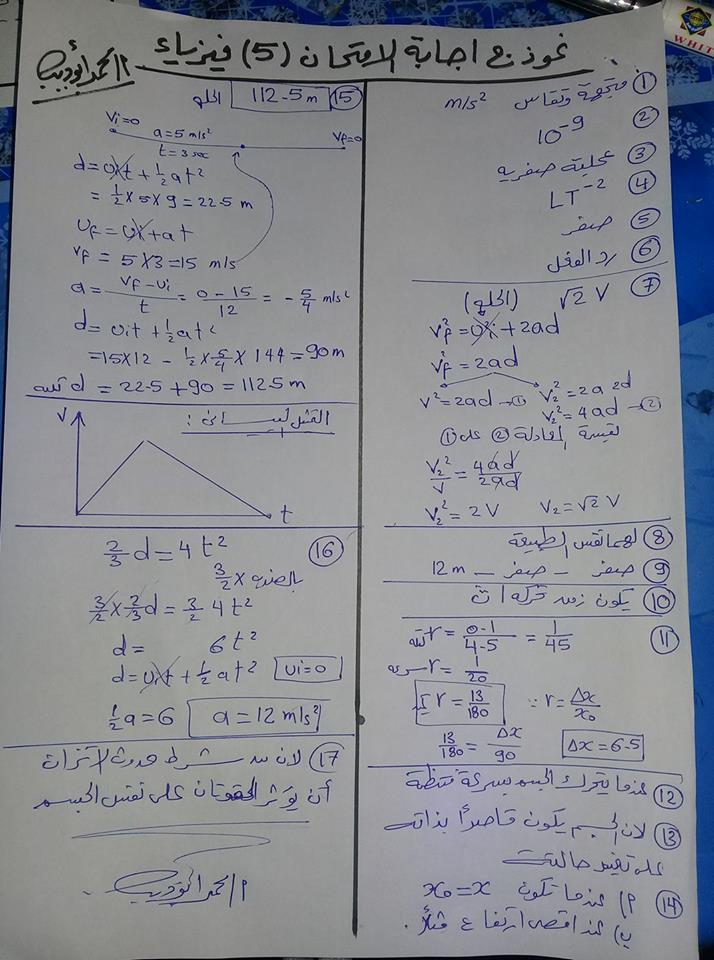 نموذج اجابة الامتحان (5) فيزياء
① متجهة وتقاس m/s²
② 10⁻⁹
③ عجلته صفريه
④ LT⁻²
⑤ صفر
⑥ رد الفعل
⑦ √2 V (الحلو)
Vf² = Vi² + 2ad
Vf² = 2ad
V² = 2ad → ①
V₂² = 2a 2d
V₂² = 4ad → ②
بقسمة المعادلة ② على ①
V₂²/V = 4ad/2ad
V₂² = 2V V₂ = √2 V
⑧ لهما نفس الطبيعة
⑨ صفر – صفر – 12m
⑩ يكون زمن حركة
⑪ r = 0.1/4.5 = 1/45
r = 1/20
r = 13/180 ∵ r = Δx/x₀
13/180 = Δx/90 Δx = 6.5
⑫ عندما يتحرك الجسم بسرعة منتظمة
⑬ لان الجسم يكون قاصراً بذاته
على تغيير حالته
⑭ م) عندما تكون x₀ = x
ب) عند اقصى ارتفاع مثلاً.
⑮ 112.5 m الحلو
Vi=0 a=5 m/s² Vf=0
t=3 sec
d = vit + ½at²
= ½ × 5 × 9 = 22.5 m
Vf = Vi + at
Vf = 5 × 3 = 15 m/s
a = Vf - Vi/t = 0 - 15/12 = - 5/4 m/s²
d = Vit + ½at²
= 15×12 - ½ × 5/4 × 144 = 90 m
d = 22.5 + 90 = 112.5 m
التمثيل البيانى :
V
t
⑯ ⅔ d = 4t²
بالضرب × 3/2
3/2 × 2/3 d = 3/2 4t²
d = 6t²
d = Vit + ½at² Vi=0
½a = 6 a = 12 m/s²
⑰ لان من شرط حدوث الاتزان
أن يؤثر القوتان على نفس الجسم
WHIT